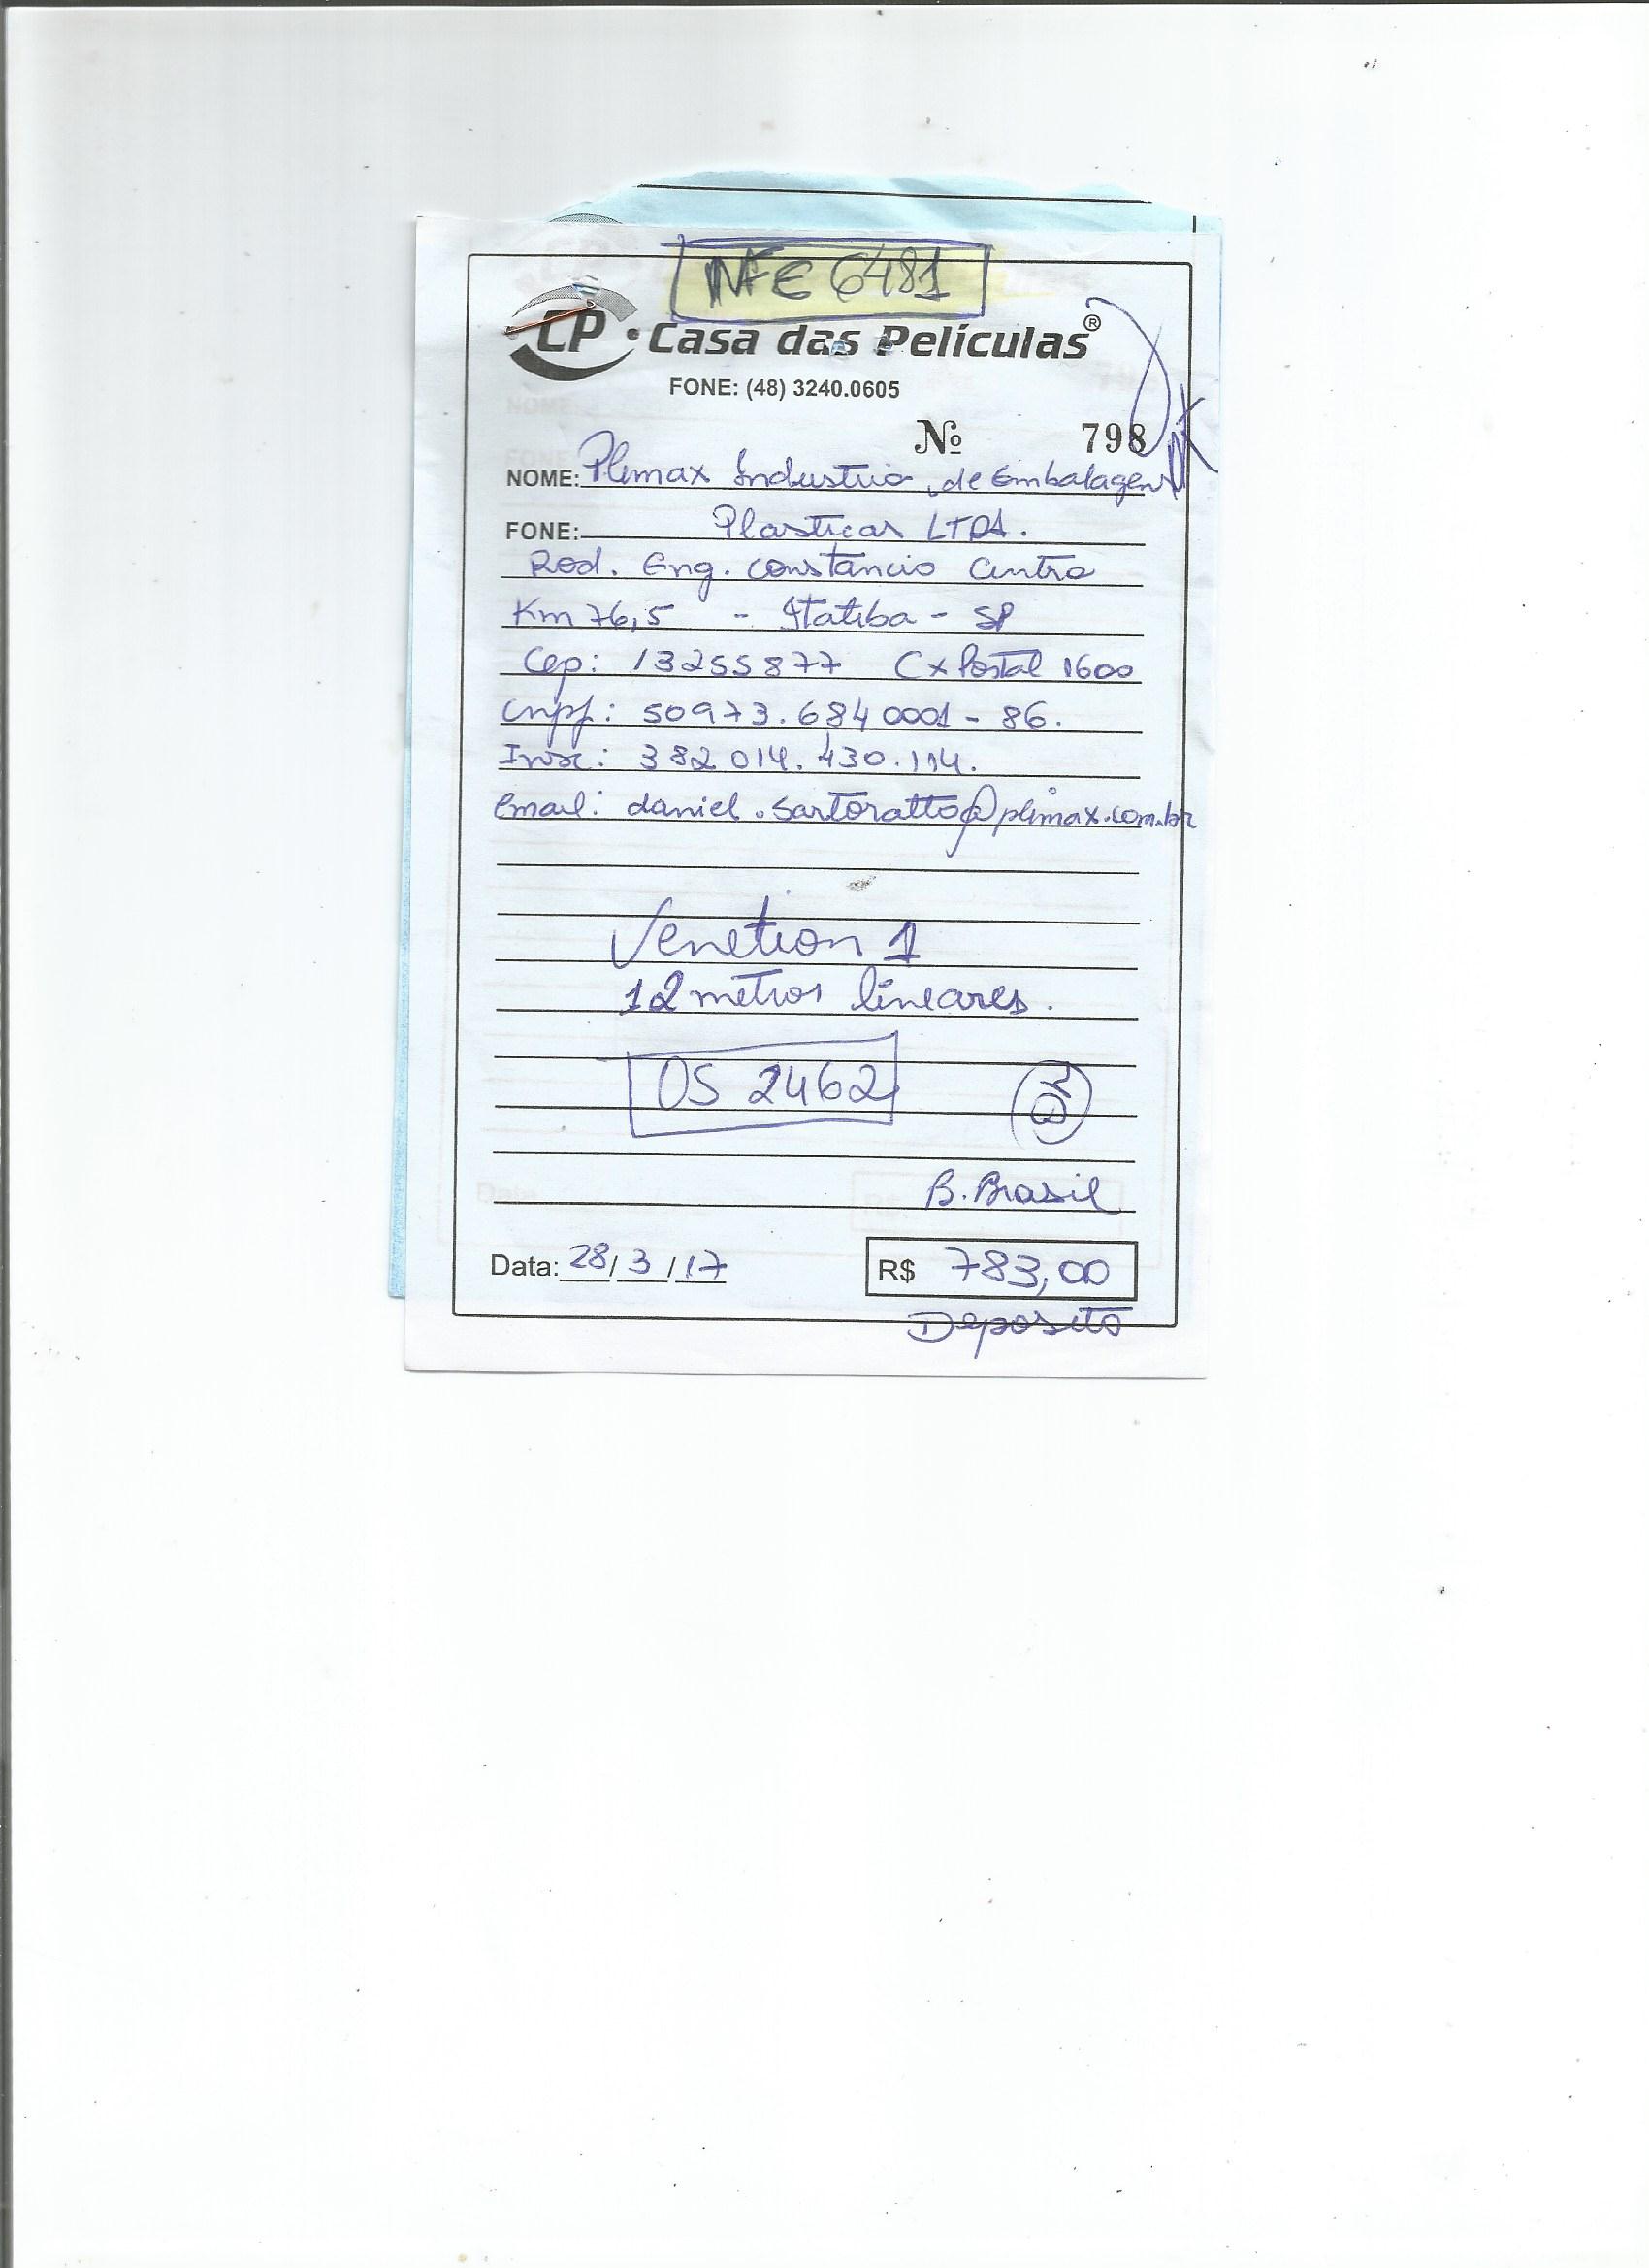 NFE 6481
CP • Casa das Películas®
FONE: (48) 3240.0605
Nº 798
NOME: Plimax Industria de Embalagens
FONE: Plasticas LTDA.
Rod. Eng. Constancio Cintra
Km 76,5 - Itatiba - SP
Cep: 13255877 Cx Postal 1600
Cnpj: 50973.684 0001-86.
Insc: 382 014.430.114.
Email: daniel.sartoratto@plimax.com.br
Venetion 1
12 metros lineares.
OS 2462
B. Brasil
Data: 28/3/17 R$ 783,00
Deposito